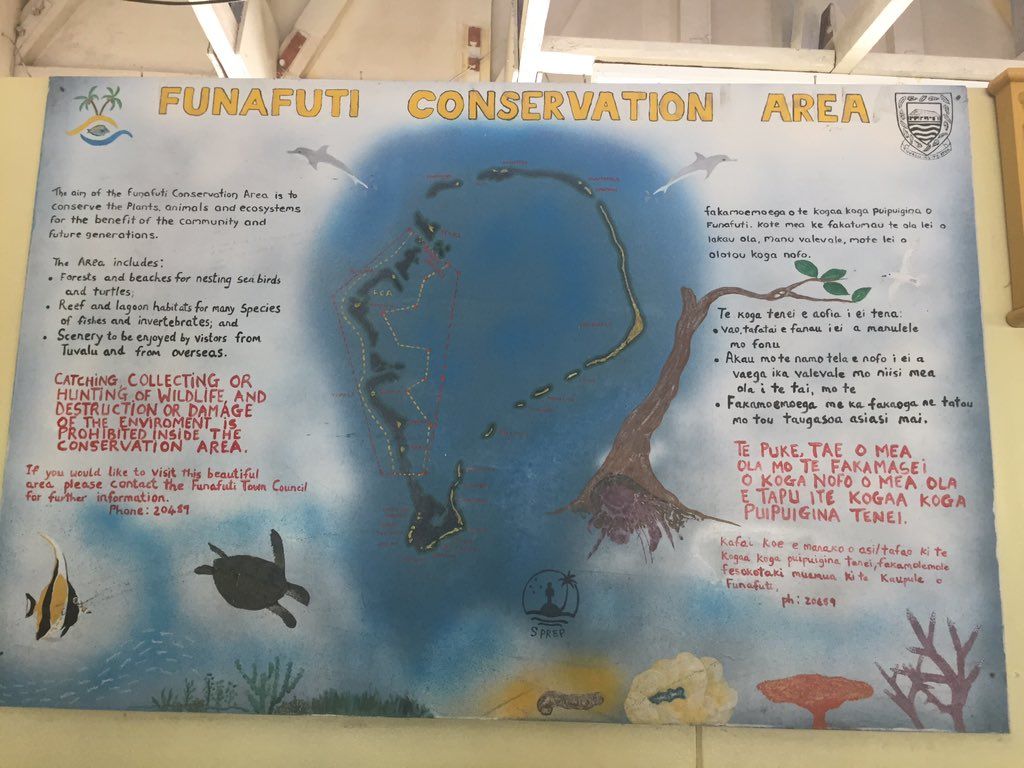 FUNAFUTI CONSERVATION AREA
The aim of the Funafuti Conservation Area is to
conserve the Plants, animals and ecosystems
for the benefit of the community and
future generations.
The Area includes:
• Forests and beaches for nesting sea birds
and turtles;
• Reef and lagoon habitats for many Species
of fishes and invertebrates; and
• Scenery to be enjoyed by vistors from
Tuvalu and from overseas.
CATCHING, COLLECTING OR
HUNTING OF WILDLIFE, AND
DESTRUCTION OR DAMAGE
OF THE ENVIROMENT IS
PROHIBITED INSIDE THE
CONSERVATION AREA.
If you would like to visit this beautiful
area please contact the Funafuti Town Council
for further information.
Phone: 20489
FCA
SPREP
fakamoemoega o te kogaa koga puipuigina o
Funafuti. kote mea ke fakatumau te ola lei o
lakau ola, manu valevale, mote lei o
olotou koga nofo.
Te koga tenei e aofia i ei tena:
• vao, tafatai e fanau i ei a manulele
mo fonu
• Akau mo te namo tela e nofo i ei a
vaega ika valevale mo niisi mea
ola i te tai, mo te
• Fakamoemoega me ka fakaoga ne tatou
mo tou taugasoa asiasi mai.
TE PUKE, TAE O MEA
OLA MO TE FAKAMASEI
O KOGA NOFO O MEA OLA
E TAPU ITE KOGAA KOGA
PUIPUIGINA TENEI.
Kafai koe e manako o asi/tafao ki te
kogaa koga puipuigina tenei, fakamolemole
fesokotaki muamua ki te Kaupule o
Funafuti,
ph: 20489